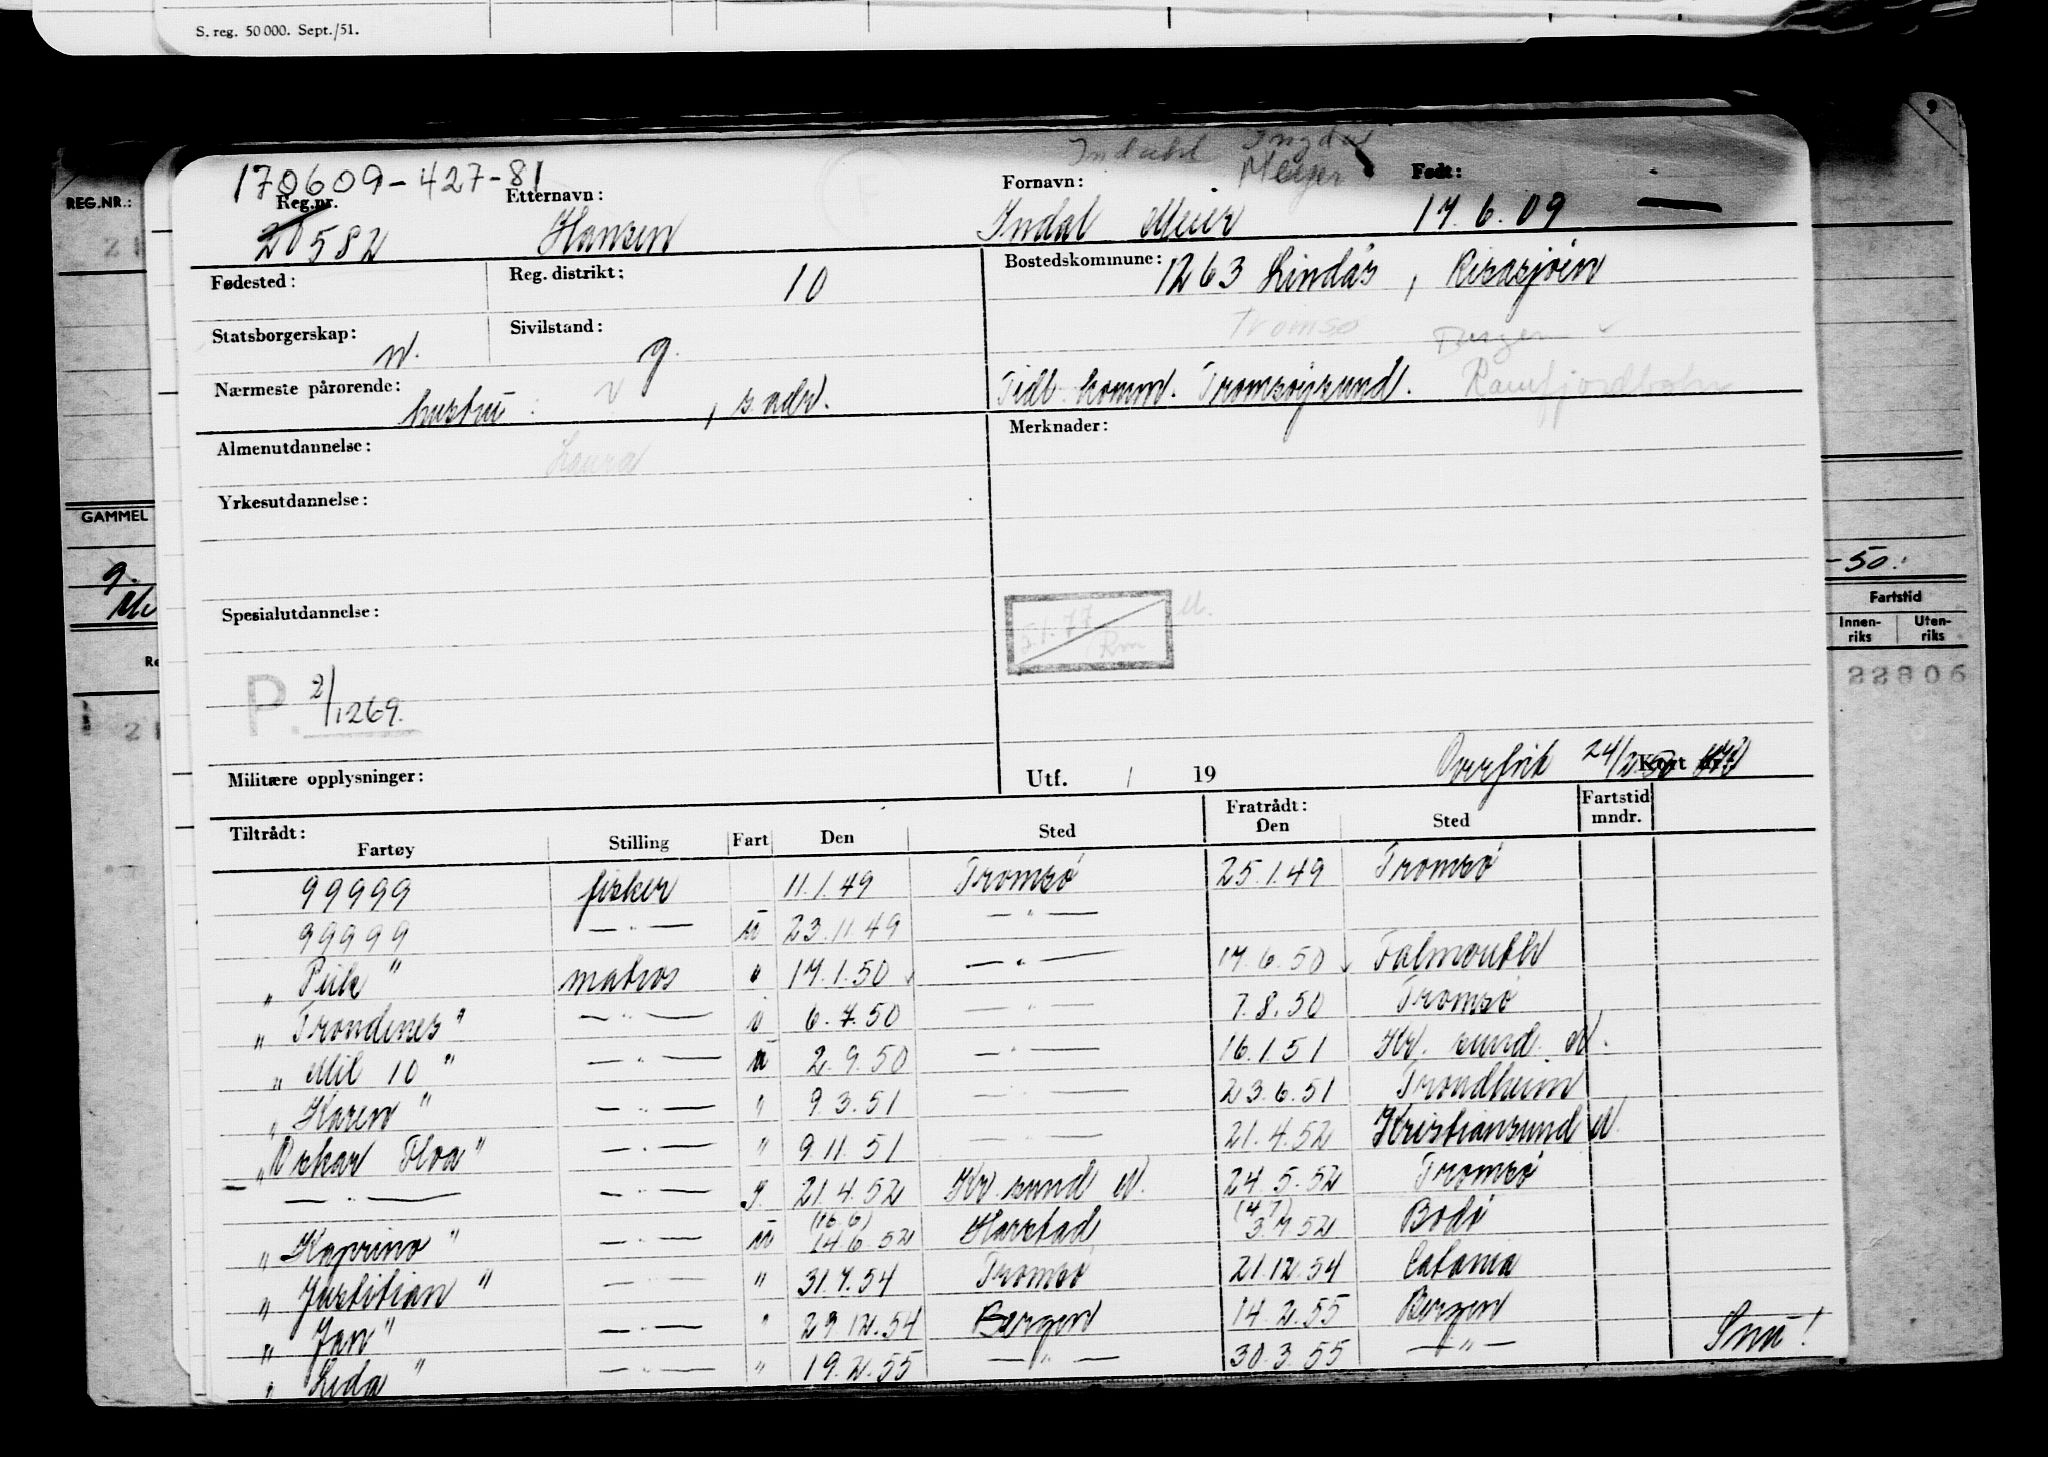 S. reg. 50 000. Sept./51.
REG.NR.:
GAMMEL
g.
- 50.
Fartstid
Innen-riks Uten-riks
22806
170609-427-81 Meyer
Reg.nr. Etternavn: Fornavn: Født:
20582 Hansen Indal Meier 17.6.09
Fødested: Reg. distrikt: 10 Bostedskommune: 1263 Lindås,
Statsborgerskap: n. Sivilstand: g. Tromsø
Nærmeste pårørende: hustru: , s. adr. Tidl. komm. Tromsøysund. Ramfjordbotn
Almenutdannelse: Laura Merknader:
Yrkesutdannelse:
Spesialutdannelse:
P. 2/1269.
Militære opplysninger: Utf. / 19 Overført 24/2 Kort nr.
Tiltrådt: Fartøy Stilling Fart Den Sted Fratrådt: Den Sted Fartstid mndr.
99999 fisker 11.1.49 Tromsø 25.1.49 Tromsø
99999 — " — u 23.11.49 — " —
" Peik " matros " 17.1.50 — " — 17.6.50 Falmouth
" Trondenes " — " — i 6.7.50 — " — 7.8.50 Tromsø
" Mil 10 " — " — u 2.9.50 — " — 16.1.51 Kr. sund. N.
" Karen " — " — " 9.3.51 — " — 23.6.51 Trondheim
" Oskar Floa " — " — " 9.11.51 — " — 21.4.52 Kristiansund N
— " — — " — 21.4.52 Kr. sund N. 24.5.52 Tromsø
" Kaprino " — " — u (16.6) 14.6.52 Harstad (4.7) 3.7.52 Bodø
" Justitian " — " — " 31.7.54 Tromsø 21.12.54 Catania
" Jan " — " — " 29.12.54 Bergen 14.2.55 Bergen
" Leda " — " — " 19.2.55 — " — 30.3.55 — " —
Snu!